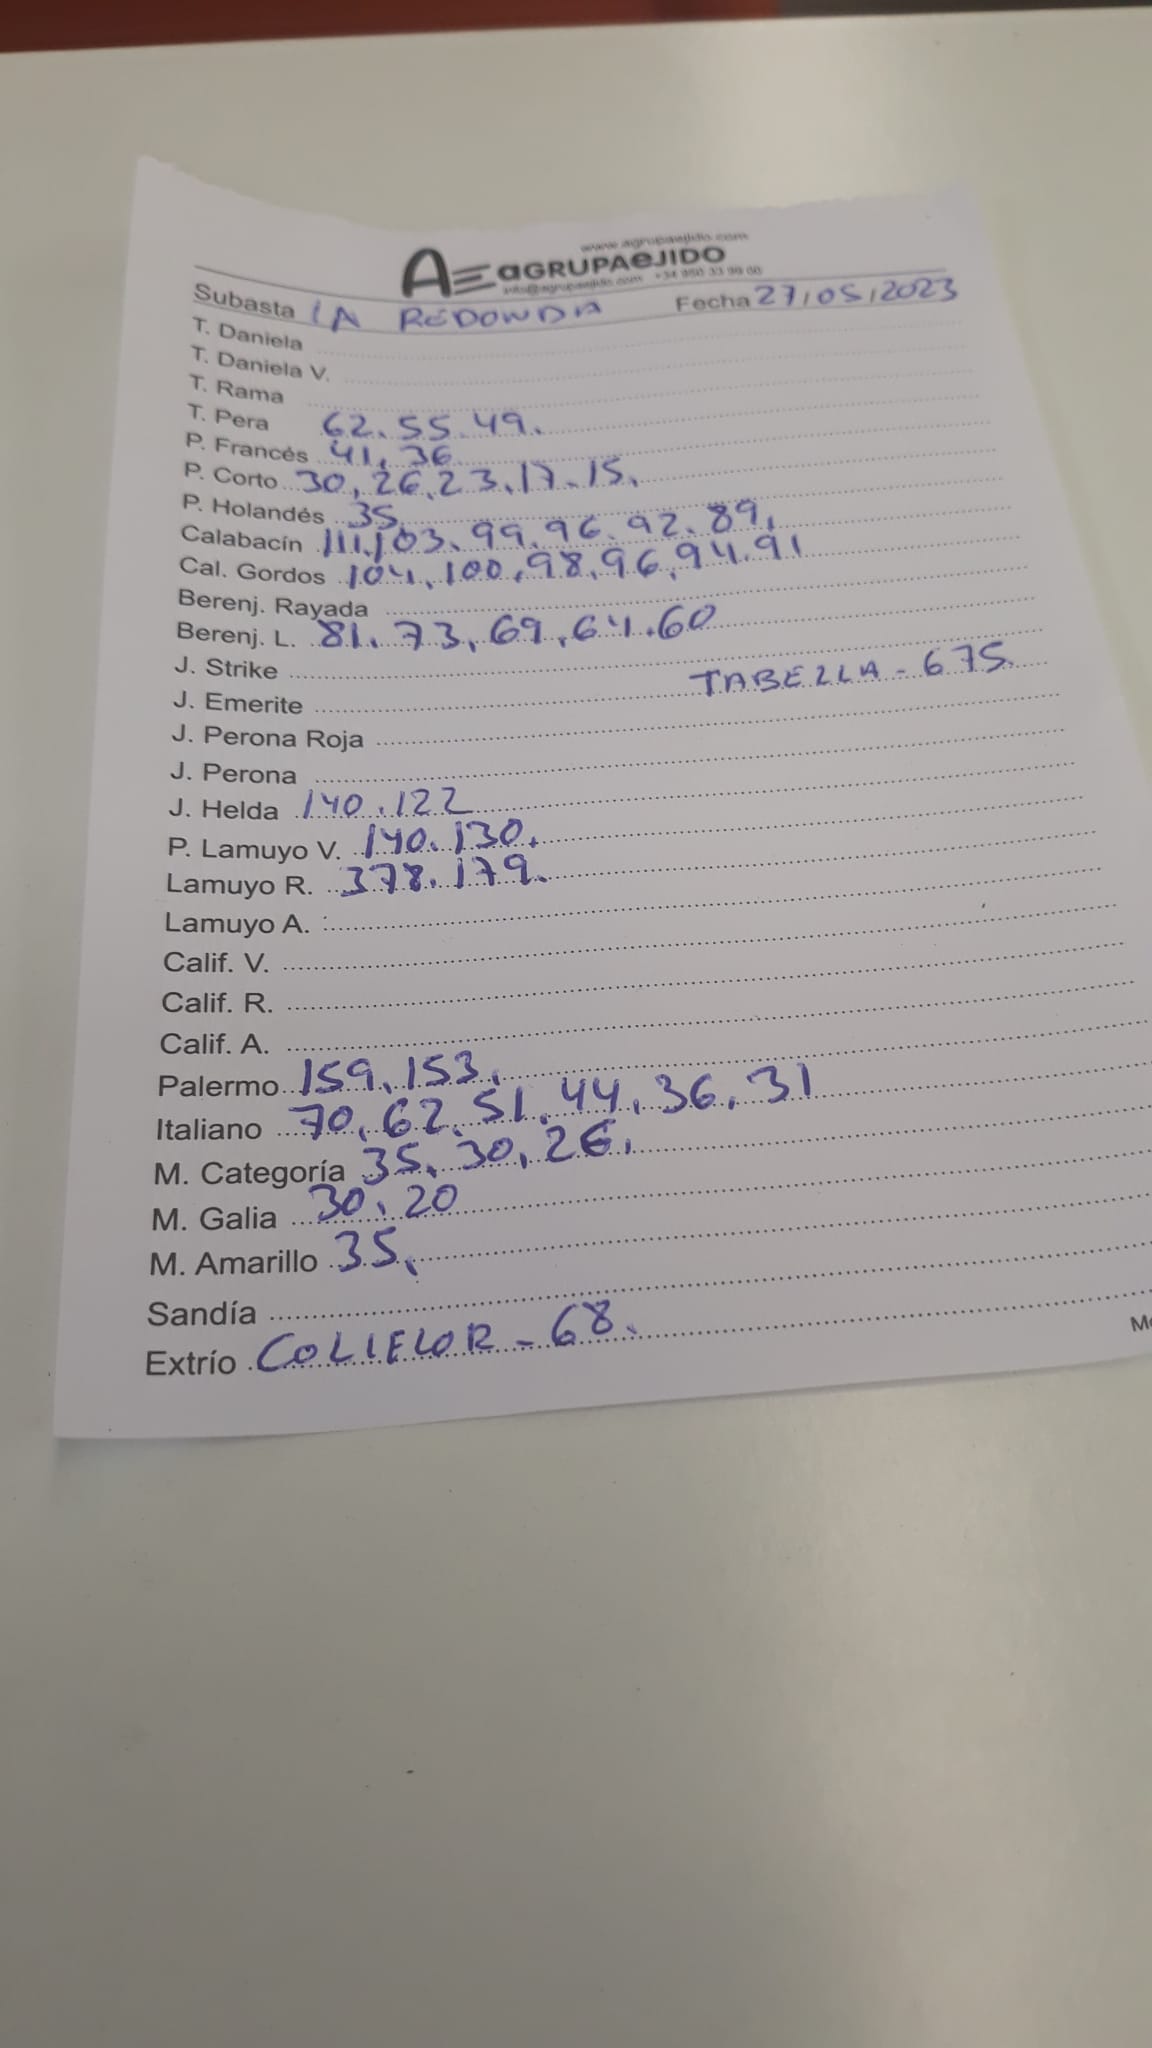 www.agrupaejido.com
AGRUPAEJIDO
info@agrupaejido.com +34 950 33 99 00
Subasta LA REDONDA Fecha 27/05/2023
T. Daniela
T. Daniela V.
T. Rama
T. Pera 62. 55. 49.
P. Francés 41, 36
P. Corto 30, 26, 23, 17. 15.
P. Holandés 35,
Calabacín 111, 103. 99. 96. 92. 89.
Cal. Gordos 104, 100, 98, 96, 94. 91
Berenj. Rayada
Berenj. L. 81. 73, 69, 64. 60
J. Strike
J. Emerite TABELLA - 675.
J. Perona Roja
J. Perona
J. Helda 140. 122
P. Lamuyo V. 140. 130.
Lamuyo R. 378. 179.
Lamuyo A.
Calif. V.
Calif. R.
Calif. A.
Palermo 159, 153,
Italiano 70, 62. 51. 44, 36, 31
M. Categoría 35, 30, 26.
M. Galia 30, 20
M. Amarillo 35,
Sandía
Extrío COLIFLOR - 68.